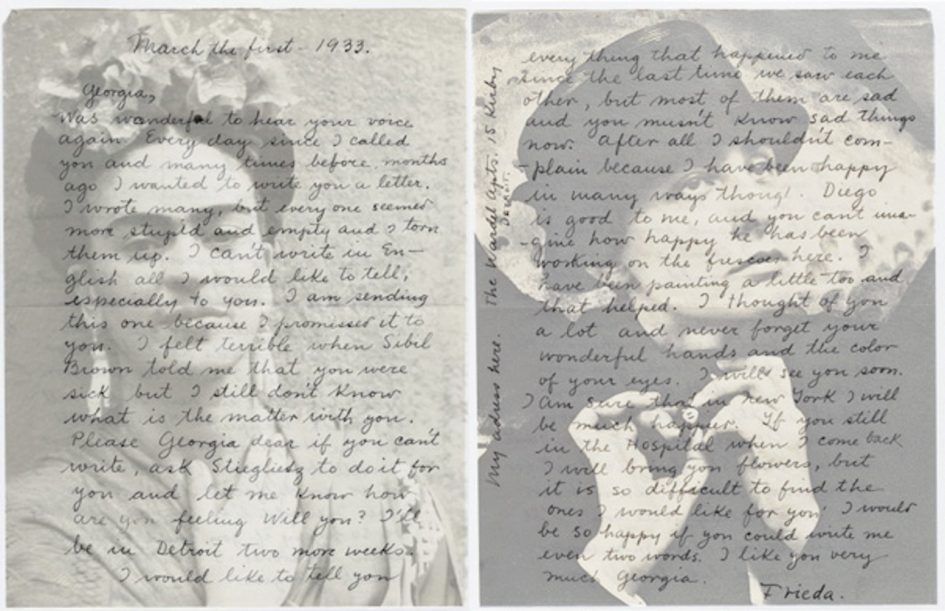 March the first - 1933.
Georgia,
Was wonderful to hear your voice
again. Every day since I called
you and many times before months
ago I wanted to write you a letter.
I wrote many, but every one seemed
more stupid and empty and I torn
them up. I can't write in En-
glish all I would like to tell,
especially to you. I am sending
this one because I promised it to
you. I felt terrible when Sibil
Brown told me that you were
sick but I still don't know
what is the matter with you.
Please Georgia dear if you can't
write, ask Stieglitz to do it for
you and let me know how
are you feeling Will you? I'll
be in Detroit two more weeks.
I would like to tell you
every thing that happened to me
since the last time we saw each
other, but most of them are sad
and you musn't know sad things
now. After all I shouldn't com-
-plain because I have been happy
in many ways though. Diego
is good to me, and you can't ima-
-gine how happy he has been
working on the frescoes here. I
have been painting a little too and
that helped. I thought of you
a lot and never forget your
wonderful hands and the color
of your eyes. I will see you soon.
I am sure that in New York I will
be much happier. If you still
in the Hospital when I come back
I will bring you flowers, but
it is so difficult to find the
ones I would like for you. I would
be so happy if you could write me
even two words. I like you very
much Georgia.
Frieda.
My adress here. The Wardell Apts. 15 Kirby
Detroit.